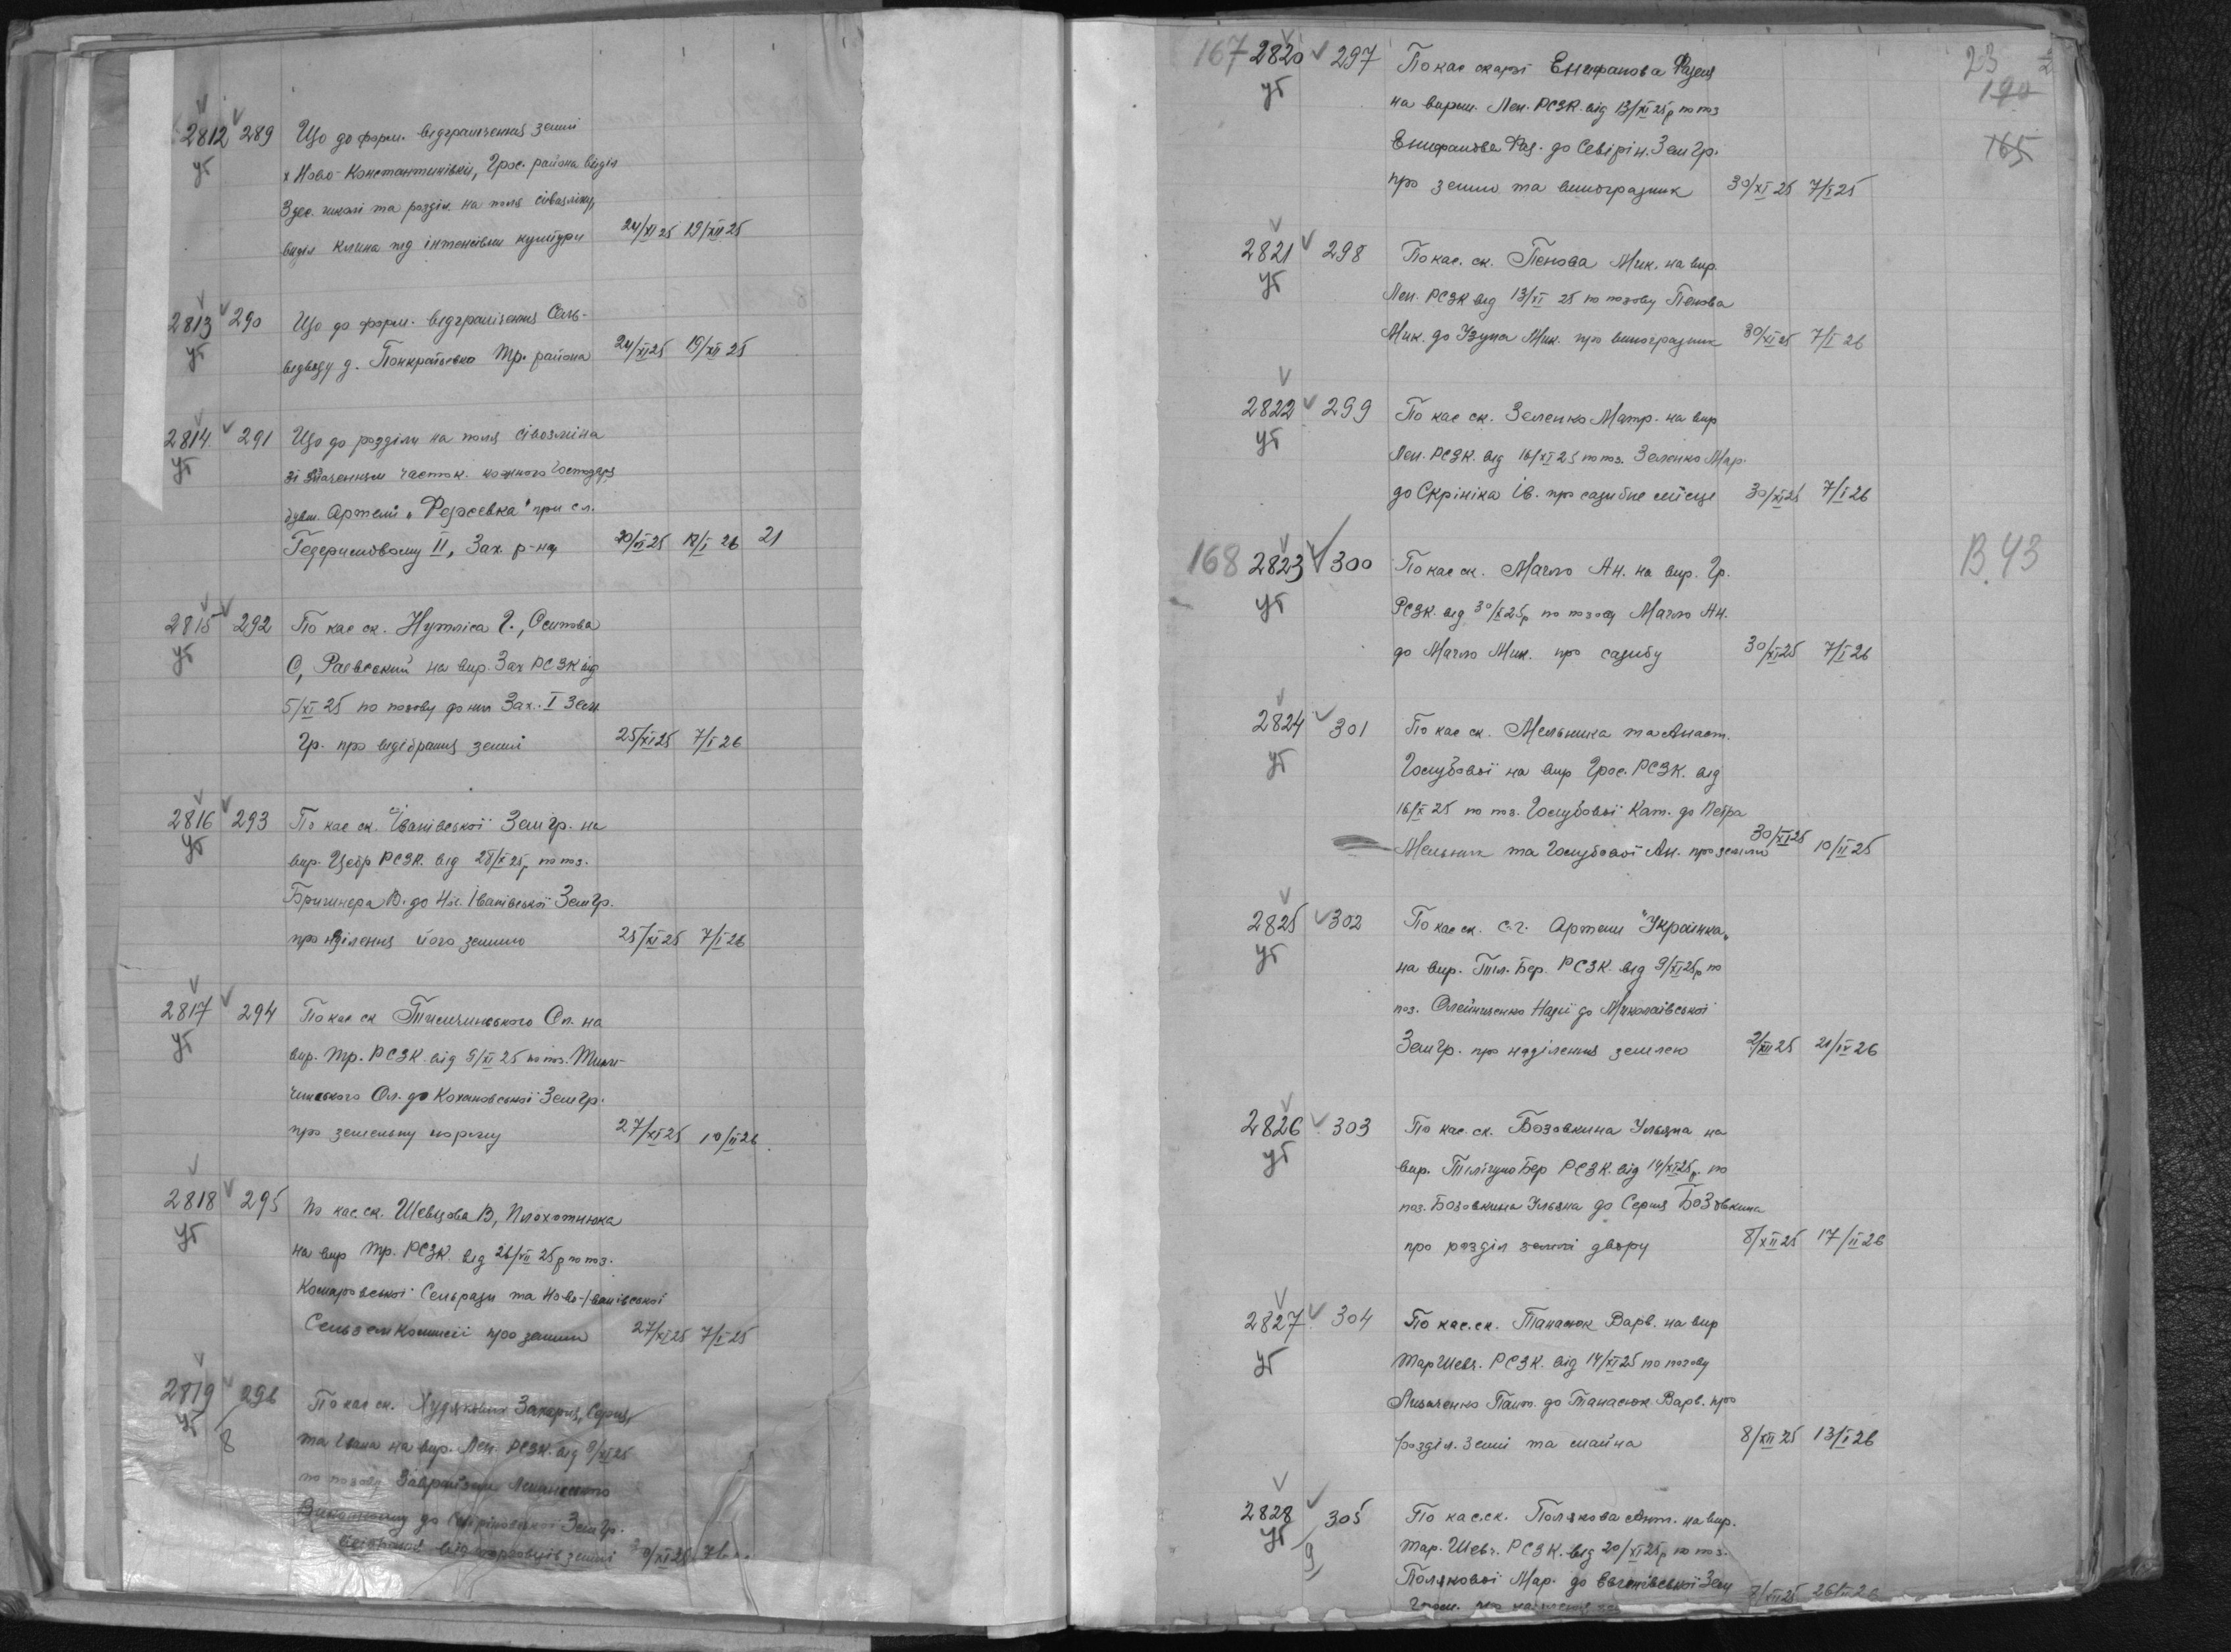 2812 289 Що до форм. відграничення землі
уг х Ново-Константинівки, Грос. района виділ
3 дес. школі та розділ на поля сівозміни,
виділ клина під інтенсівни культури 24/XI 25 19/XII 25
2813 290 Що до форм. відграничення Сель-
уг відводу д. Понкратьевка Тр. района 24/XI 25 19/XII 25
2814 291 Що до розділу на поля сівозміна
уг зі значенням часток. кожного господаря
бувш. Артели „Федосеевка" при сл.
II, Зах. р-на 20/XI 25 18/I 26 21
2815 292 По кас ск. Г., Осипова
уг С, Раевський на вир. Зах РСЗК від
5/XI 25 по позову до них Зах. I Зем
Гр. про відібрання землі 25/XI 25 7/I 26
2816 293 По кас ск. Іванівської Зем Гр. на
уг вир. Цебр РСЗК. від 28/X 25р по поз.
В. до Нов. Іванівської Зем Гр.
про наділення його землею 25/XI 25 7/I 26
2817 294 По кас ск Тимчинського Ол. на
уг вир. Тр. РСЗК. від 9/XI 25 по поз. Тим-
чинського Ол. до Кохановської Зем Гр.
про земельну норму 27/XI 25 10/II 26
2818 295 По кас. ск. Шевцова В, Плохотнюка
уг на вир Тр. РСЗК. від 26/VII 25р по поз.
Комаровської Сельради та Ново-Іванівської
Сельземкомисії про землю 27/XI 25 7/I 25
2819 296 По кас ск. Худякових Захария, Сергия,
уг 8 та Івана на вир. Лен. РСЗК. від 9/XI 25
по позову
до Зем Гр.
від землі 30/XI 25 7/I
167 2820 297 По кас скарзі Енифанова Фадея 23 2
уг на вирш. Лен. РСЗК. від 13/XI 25р по поз 190
Енифанова Фад. до Севірін. Зем Гр. 165
про землю та виноградник 30/XI 25 7/I 25
2821 298 По кас. ск. Пенова Мик. на вир.
уг Лен. РСЗК від 13/XI 25 по позову Пенова
Мик. до Узуна Мик. про виноградник 30/XI 25 7/I 26
2822 299 По кас ск. Зеленко Матр. на вир
уг Лен. РСЗК. від 16/XI 25 по поз. Зеленко Мар.
до Скрініка Ів. про садибне місце 30/XI 25 7/I 26
168 2823 300 По кас ск. Магло Ан. на вир. Гр. В.43
уг РСЗК. від 30/X 25р по позову Магло Ан.
до Магло Мик. про садибу 30/XI 25 7/I 26
2824 301 По кас ск. Мельника та Анаст.
уг Голубової на вир Грос. РСЗК. від
16/X 25 по поз. Голубової Кат. до Петра
Мельник та Голубової Ан. про землю 30/XI 25 10/II 25
2825 302 По кас ск. с.г. Артели "Українка„
уг на вир. Тіл. Бер. РСЗК. від 9/XI 25р по
поз. Олейниченко Надії до Миколаівської
Зем Гр. про наділення землею 2/XII 25 21/IV 26
2826 303 По кас. ск. Бозовкина Ульяна на
уг вир. Тілігуло Бер РСЗК. від 14/XI 25р. по
поз. Бозовкина Ульяна до Сергия Бозовкина
про розділ землі двору 8/XII 25 17/II 26
2827 304 По кас. ск. Танасюк Варв. на вир
уг Тар Шевч. РСЗК. від 14/XI 25 по позову
Лизаченко Пант. до Танасюк Варв. про
розділ. землі та майна 8/XII 25 13/I 26
2828 305 По кас. ск. Полякова Ант. на вир.
уг 9 Тар. Шевч. РСЗК. від 20/XI 25р по поз.
Полякової Мар. до Евгенівської Зем
Гром. про 7/XII 25 26/II 26